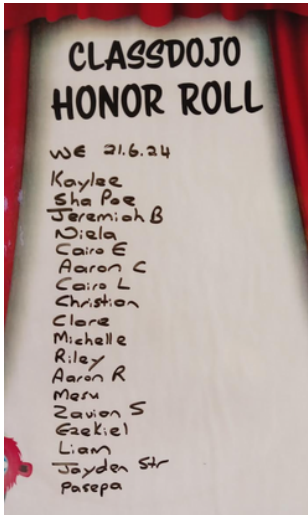 CLASSDOJO
HONOR ROLL
WE 21.6.24
Kaylee
Sha Poe
Jeremiah B
Niela
Cairo E
Aaron C
Cairo L
Christian
Clare
Michelle
Riley
Aaron R
Mesu
Zavion S
Ezekiel
Liam
Jayden Str
Pasepa